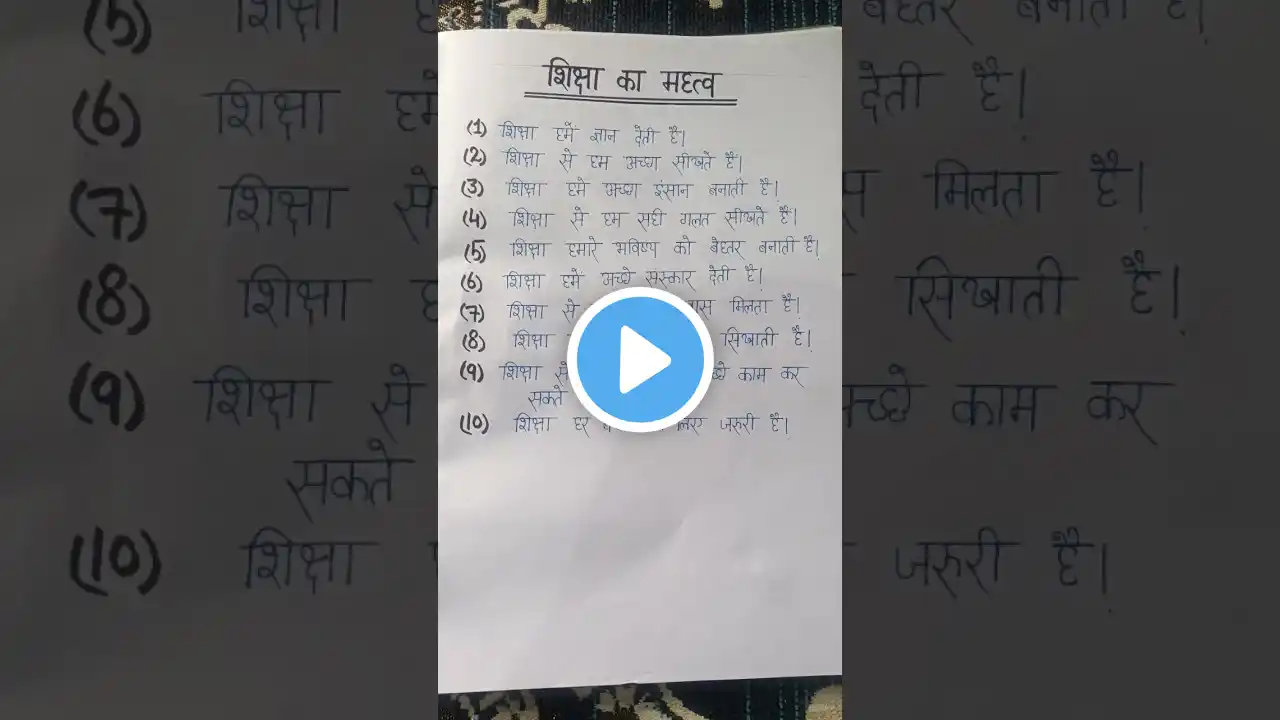 शिक्षा का महत्व
(1) शिक्षा हमें ज्ञान देती है।
(2) शिक्षा से हम अच्छा सीखते हैं।
(3) शिक्षा हमें अच्छा इंसान बनाती है।
(4) शिक्षा से हम सही गलत सीखते हैं।
(5) शिक्षा हमारे भविष्य को बेहतर बनाती है।
(6) शिक्षा हमें अच्छे संस्कार देती है।
(7) शिक्षा से मिलता है।
(8) शिक्षा सिखाती है।
(9) शिक्षा से काम कर
सकते
(10) शिक्षा हर लिए जरुरी है।